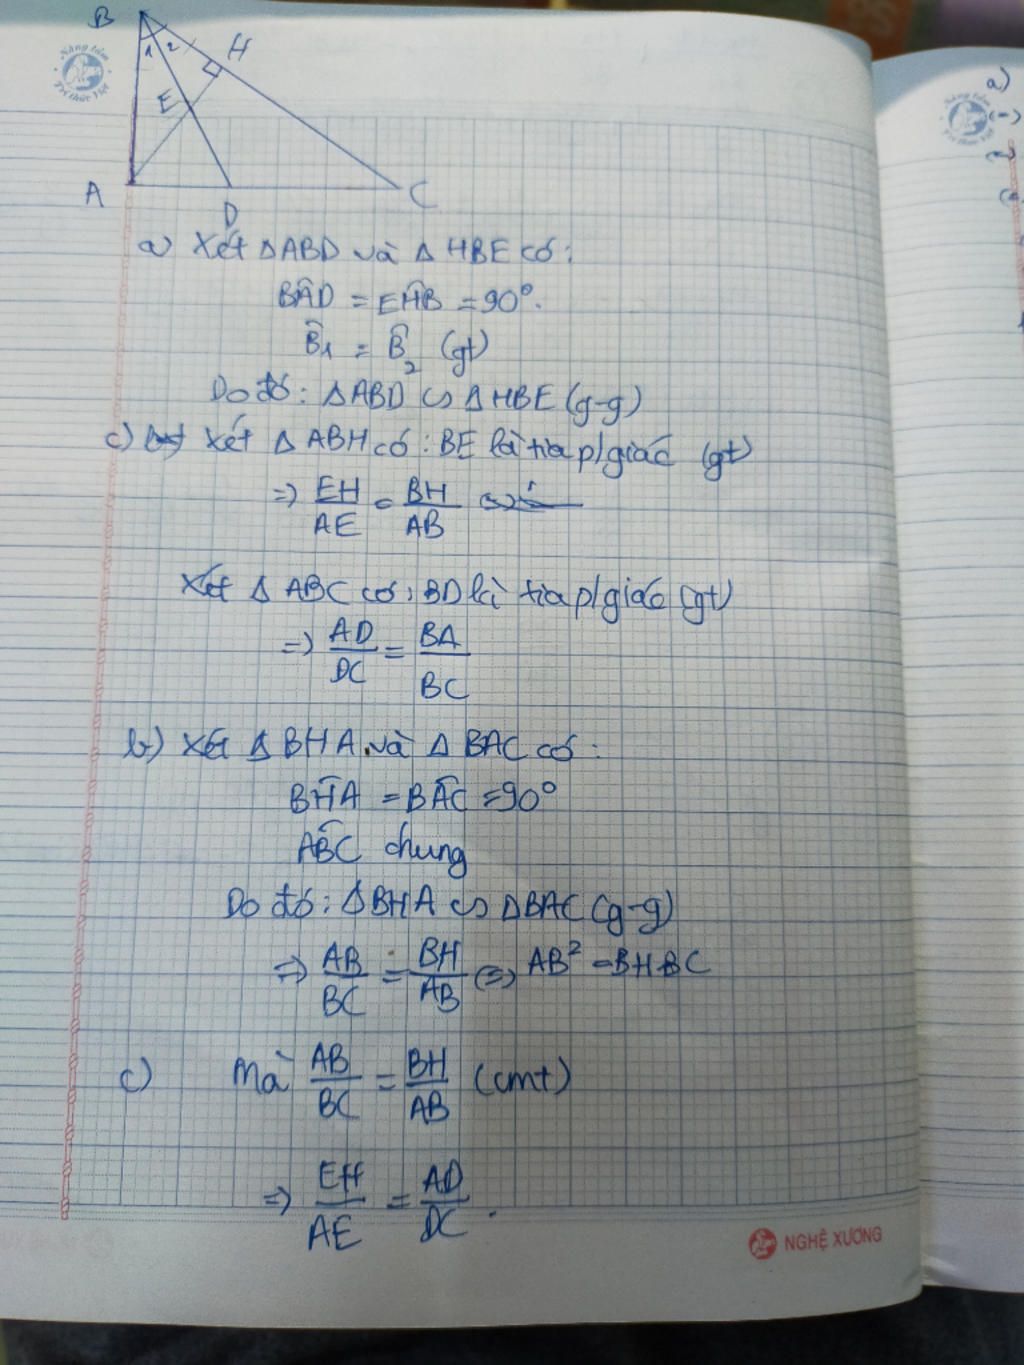 B
1 2
H
E
A
D
C
Nâng tầm
Trí thức Việt
a) Xét ΔABD và ΔHBE có:
BÂD = EĤB = 90°.
B̂1 = B̂2 (gt)
Do đó: ΔABD ∽ ΔHBE (g-g)
c) Xét ΔABH có: BE là tia p/giác (gt)
=> EH/AE = BH/AB
Xét ΔABC có: BD là tia p/giác (gt)
=> AD/DC = BA/BC
b) Xét ΔBHA và ΔBAC có:
BĤA = BÂC = 90°
AB̂C chung
Do đó: ΔBHA ∽ ΔBAC (g-g)
=> AB/BC = BH/AB <=> AB² = BH.BC
c) Mà AB/BC = BH/AB (cmt)
=> EH/AE = AD/DC.
NGHỆ XƯƠNG
a)